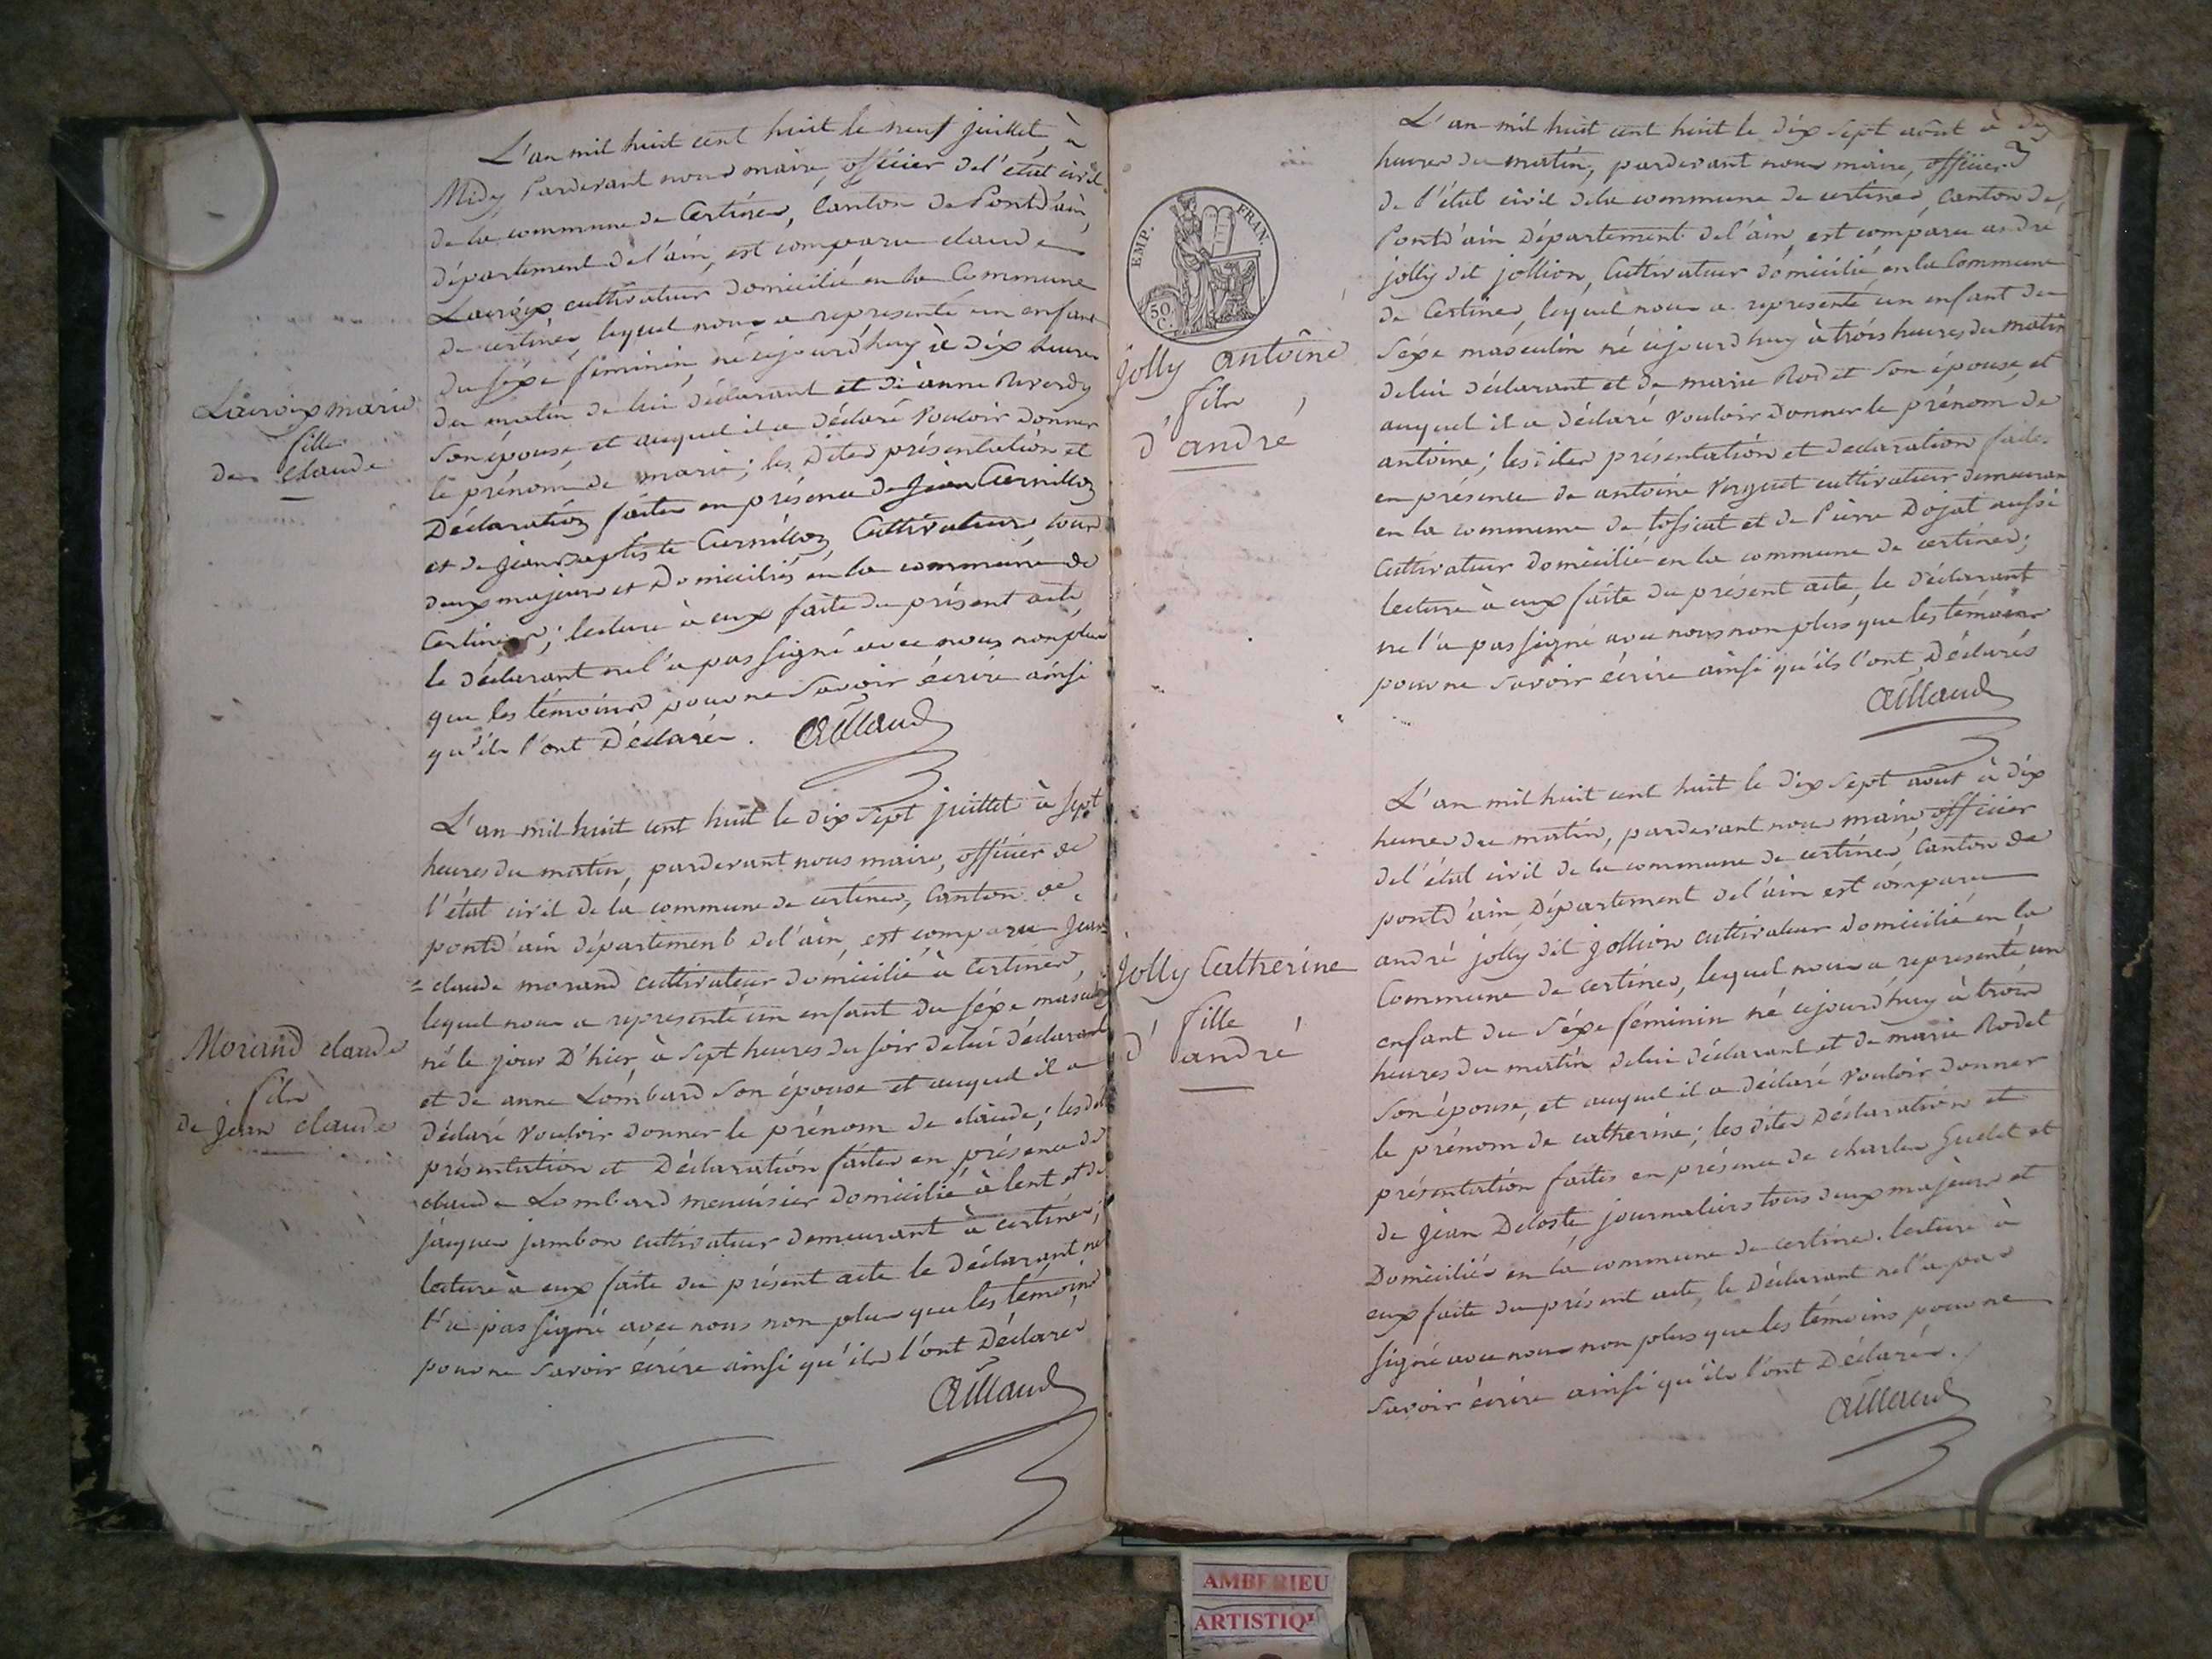 L'an mil huit cent huit le neuf juillet à
Midy Pardevant nous maire, officier de l'état civil
de la commune de Certines, Canton de Pontd'ain,
département de l'ain, est comparu claude
Lacroix cultivateur domicilié en la Commune
de certines, lequel nous a representé un enfant
du séxe féminin, né cejourd'huy à dix heures
du matin de lui déclarant et de anne Reverdy
Son épouse et auquel il a déclaré vouloir donner
le prénom de marie; les dites présentation et
Déclaration faites en présence de Jean Curnillon
et de jean Baptiste Curnillon, Cultivateurs tous
deux majeurs et Domiciliés en la commune de
Certines; lecture à eux faite du présent acte
le déclarant ne l'a pas signé avec nous non plus
que les témoins pour ne Savoir écrire ainsi
qu'ils l'ont Déclaré.
Lacroix marie
fille
de Claude
L'an mil huit cent huit le dix sept juillet à sept
heures du matin, pardevant nous maire, officier de
l'état civil de la commune de certines, Canton de
pontd'ain département de l'ain, est comparu Jean
= claude morand cultivateur domicilié à Certines,
lequel nous a representé un enfant du séxe masculin
né le jour D'hier, à sept heures du soir de lui déclarant
et de anne Lombard Son épouse et auquel il a
déclaré vouloir donner le prénom de claude; les dites
présentation et Déclaration faites en présence de
claude Lombard menuisier domicilié à lent et de
jacques jambon cultivateur demeurant à certines;
lecture à eux faite du présent acte le Déclarant ne
l'a pas signé avec nous non plus que les témoins
pour ne Savoir écrire ainsi qu'ils l'ont Déclarés
Morand claude
fils
de jean claude
EMP. FRAN.
50.
C.
L'an mil huit cent huit le dix sept août à dix
heures du matin, pardevant nous maire, officier
de l'état civil de la commune de certines, Canton de
Pontd'ain Département de l'ain, est comparu andré
jolly dit jollion, Cultivateur domicilié en la Commune
de Certines, lequel nous a representé un enfant du
Séxe masculin né cejourd'huy à trois heures du matin
de lui déclarant et de marie Rodet Son épouse, et
auquel il a déclaré vouloir donner le prénom de
antoine; les dites présentation et declaration faites
en présence de antoine Verguet cultivateur demeurant
en la commune de tossiat et de Pierre Dojat aussi
Cultivateur domicilié en la commune de certines;
lecture à eux faite du présent acte, le Déclarant
ne l'a pas signé avec nous non plus que les témoins
pour ne savoir écrire ainsi qu'ils l'ont Déclarés
jolly antoine
fils
d'andre
L'an mil huit cent huit le dix sept août à dix
heures du matin, pardevant nous maire officier
de l'état civil de la commune de certines, Canton de
pontd'ain Département de l'ain est comparu
andré jolly dit jollion cultivateur domicilié en la
Commune de certines, lequel nous a representé un
enfant du séxe féminin né cejourd'huy à trois
heures du matin de lui déclarant et de marie Rodet
Son épouse, et auquel il a déclaré vouloir donner
le prénom de catherine; les dites Déclaration et
présentation faites en présence de charles Guelet et
de jean Deloste journaliers tous deux majeurs et
Domiciliés en la commune de certines. lecture à
eux faite du présent acte, le Déclarant ne l'a pas
signé avec nous non plus que les témoins pour ne
Savoir écrire ainsi qu'ils l'ont Déclaré.
Jolly Catherine
fille
d'andré
AMBERIEU
ARTISTIQU